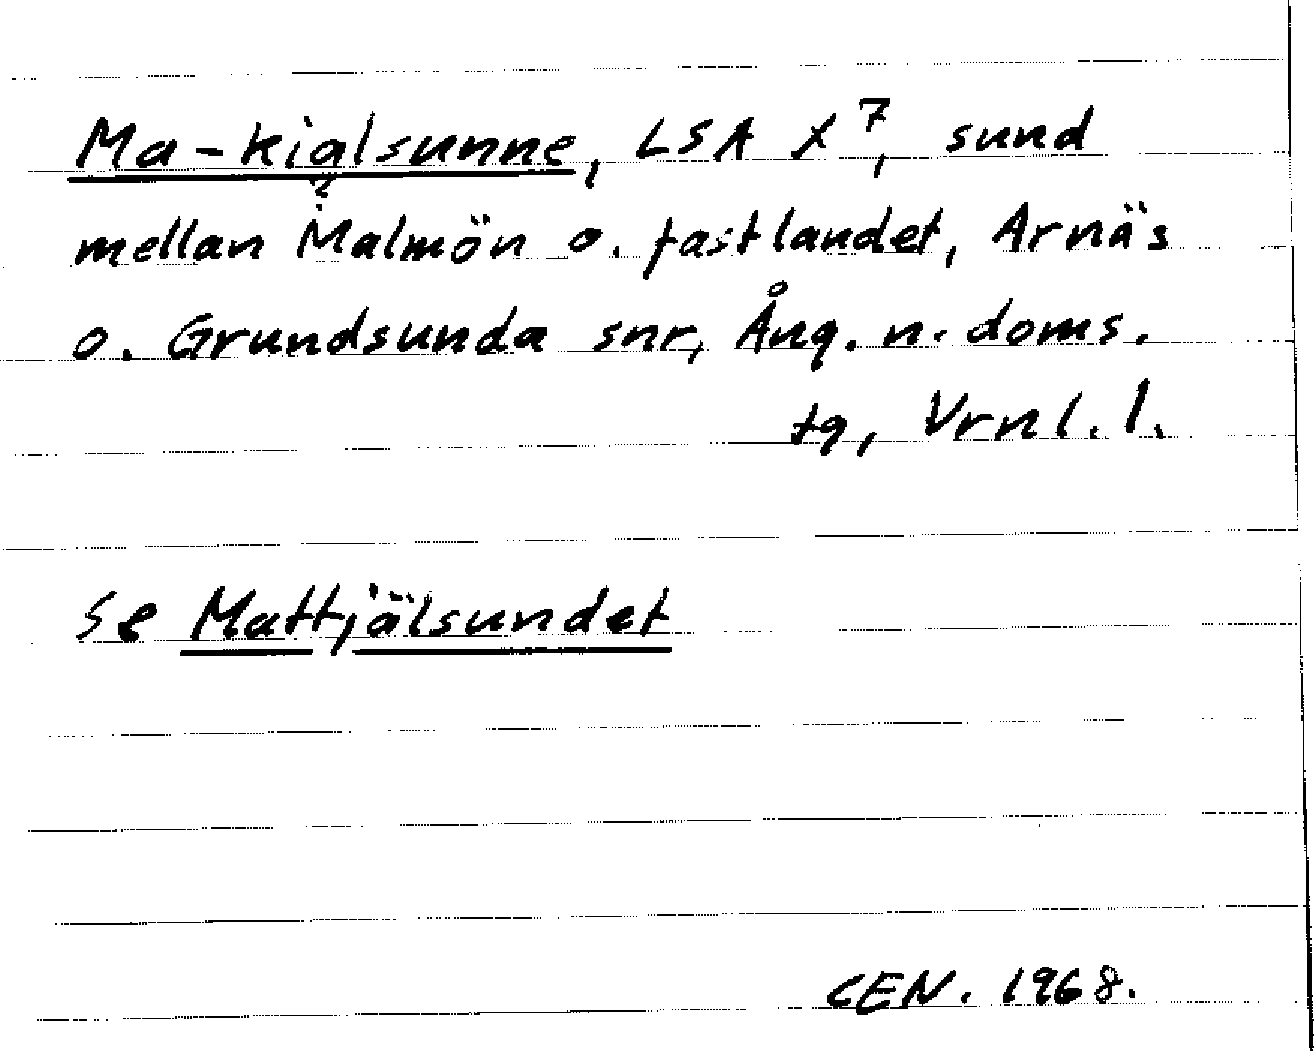 Ma-kialsunne, LSA X⁷, sund
?
mellan Malmön o. fastlandet, Arnäs
o. Grundsunda snr, Ång. n. doms.
tg, Vrnl. l.
Se Mattjälsundet
CEN. 1968.